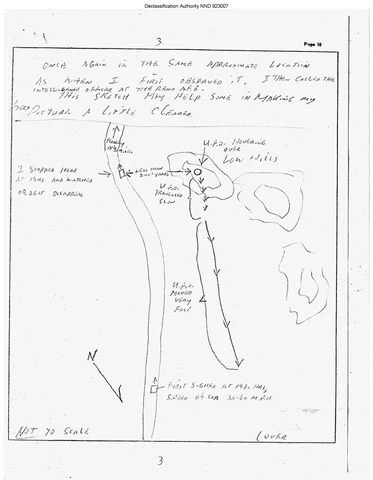 Declassification Authority NND 923007
3
Page 10
ONCE AGAIN IN THE SAME APPROXIMATE LOCATION
AS WHEN I FIRST OBSERVED IT, I THEN CALLED THE
INTELLIGENCE OFFICER AT THE RENO AFB.
THIS SKETCH MAY HELP SOME IN MAKING MY
PICTURE A LITTLE CLEARER.
U.F.O. HOVERING
OVER
LOW HILLS
I STOPPED HERE
AT AND WATCHED
OBJECT
LESS THAN
U.F.O.
TRAVELLED
SLOW
U.F.O.
MOVED
VERY
FAST
N
FIRST SIGHTED AT HRS,
SPEED OF CAR 55-60 M.P.H.
NOT TO SCALE
(OVER
3